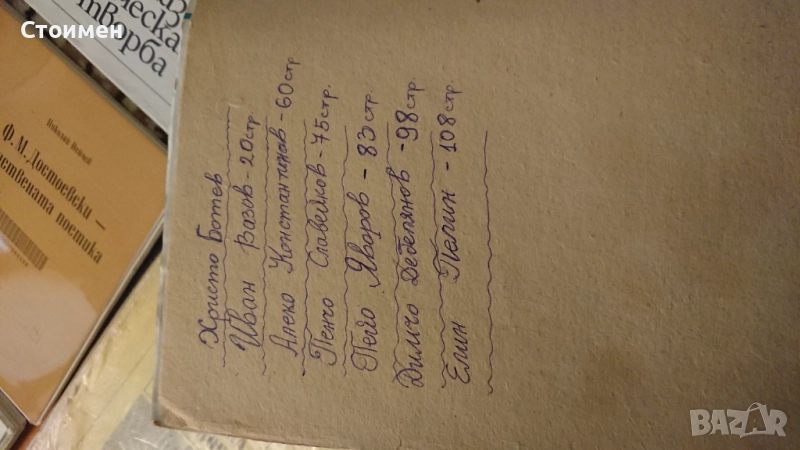 Стоимен
ческа
творба
Николай Нейчев
Ф. М. Достоевски –
ствената поетика
Христо Ботев
Иван Вазов - 20 стр.
Алеко Константинов - 60 стр
Пенчо Славейков - 75 стр.
Пейо Яворов - 83 стр.
Димчо Дебелянов - 98 стр.
Елин Пелин - 108 стр.
BAZAR
bg